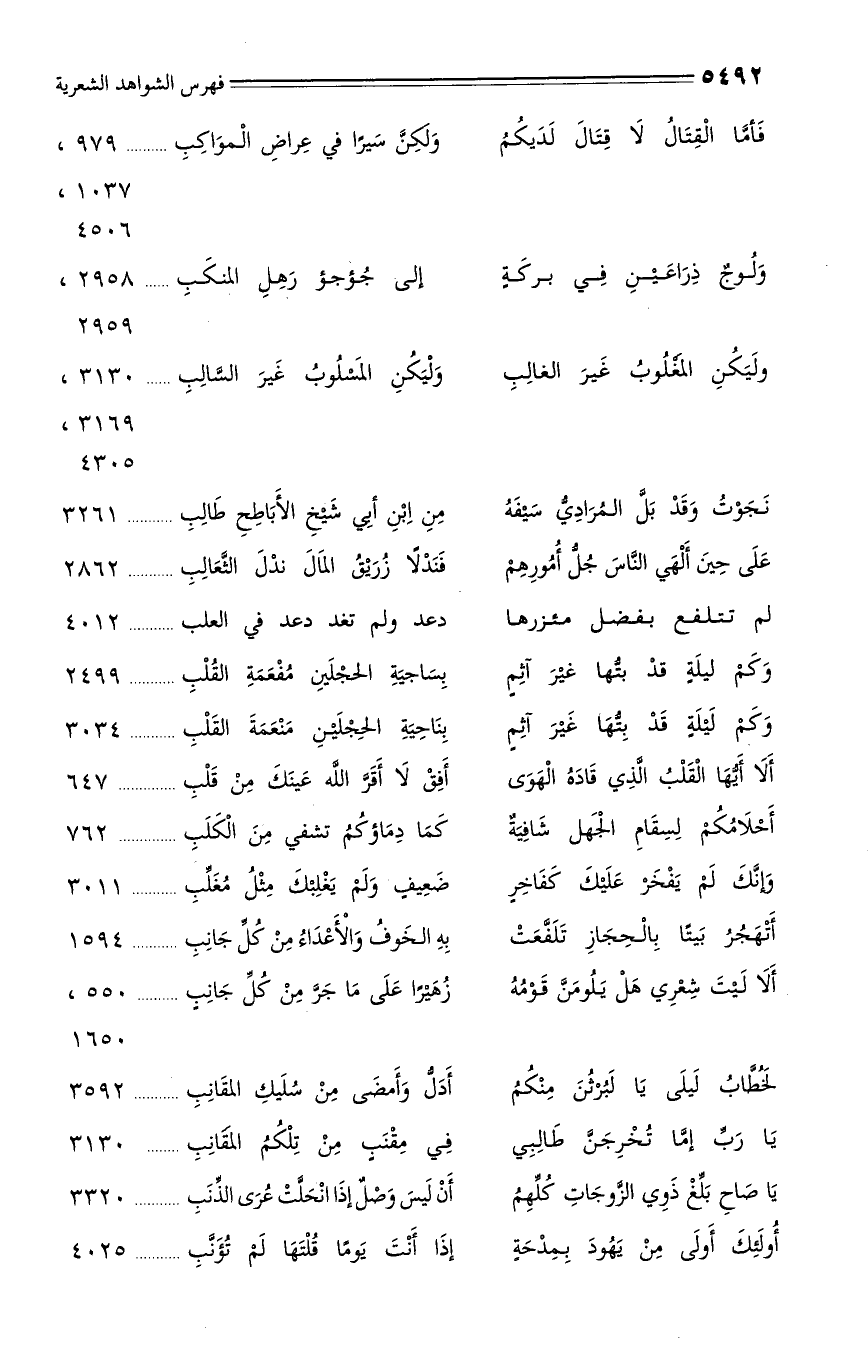 ٥٤٩٢ فهرس الشواهد الشعرية
فَأمَّا الْقِتَالُ لَا قِتَالَ لَدَيكُمُ وَلَكِنَّ سَيرًا في عِراضِ الْموَاكِبِ .......... ٩٧٩ ،
١٠٣٧ ،
٤٥٠٦
وَلُـوجٌ ذِرَاعَـيْـنِ فِـي بـركَـةٍ إلى جُؤجؤ رَهِلِ المنكَبِ ...... ٢٩٥٨ ،
٢٩٥٩
ولَيَكُنِ المَغْلُوبُ غَيرَ الغالِبِ وَلْيَكُنِ المَسْلُوبُ غَيرَ السَّالِبِ ...... ٣١٣٠ ،
٣١٦٩ ،
٤٣٠٥
نَـجَوْتُ وَقَدْ بَلَّ المُرَادِيُّ سَيْفَهُ مِنِ اِبْنِ أبِي شَيْخِ الأَبَاطِحِ طَالِبِ ........... ٣٢٦١
عَلَى حِينَ أَلْهَي النَّاسَ جُلُّ أُمُورِهِمْ فَنَدْلًا زُرَيْقُ المَالَ ندْلَ الثَّعَالِبِ ........... ٢٨٦٢
لم تـتـلـفـع بـفـضـل مـئـزرهـا دعـد ولم تغد دعد في العلب ........... ٤٠١٢
وَكَمْ ليلَةٍ قدْ بتُّها غيْرَ آثِمٍ بِسَاجيَةِ الحجْلَينِ مُفْعَمَةِ القُلْبِ ........... ٢٤٩٩
وَكَمْ لَيْلَةٍ قَدْ بِتُّهَا غَيْرَ آثِمٍ بِنَاحِيَةِ الحِجْلَيْـنِ مَنْعَمَةَ القَلْبِ ........... ٣٠٣٤
أَلَا أَيُّهَا الْقَلْبُ الَّذِي قَادَهُ الْهَوَى أَفِقْ لَا أَقَرَّ اللَّه عَينَكَ مِنْ قَلْبِ .............. ٦٤٧
أَحْلَامُكُمْ لِسِقَامِ الجَهلِ شَافِيَةٌ كَمَا دِمَاؤكُمُ تشفي مِنَ الْكَلَبِ .............. ٧٦٢
وَإِنَّكَ لَمْ يَفْخَرْ عَلَيْكَ كَفَاخِرٍ ضَعِيفٍ وَلَمْ يَغْلِبْكَ مِثْلُ مُغَلِّبِ ........... ٣٠١١
أَتْهَجُرُ بَيتًا بِالْـحِجَازِ تَلَفَّعَتْ بِهِ الـخَوفُ وَالْأَعْدَاءُ مِنْ كُلِّ جَانِبِ ........... ١٥٩٤
أَلَا لَيْتَ شِعْرِي هَلْ يَلُومَنَّ قَوْمُهُ زُهَيْرًا عَلَى مَا جَرَّ مِنْ كُلِّ جَانِبِ .......... ٥٥٠ ،
١٦٥٠
لَخُطَّابُ لَيلَى يَا لَبُرْثُنَ مِنْكُمُ أَدَلُّ وَأَمضَى مِنْ سُلَيكِ المقَانِبِ ........... ٣٥٩٢
يَا رَبِّ إمَّا تُخْرِجَنَّ طَالِبِي فِي مِقْنَبٍ مِنْ تِلْكُمُ المَقَانِبِ ........ ٣١٣٠
يَا صَاحِ بَلِّغْ ذَوِي الزَّوجَاتِ كُلِّهِمُ أنْ ليَس وَصْلٌ إذَا انْحَلَّتْ عُرَى الذَّنَبِ ........... ٣٣٢٠
أُولَئِكَ أَولَى مِنْ يَهُودَ بِـمِدْحَةٍ إذَا أَنْتَ يَومًا قُلْتَهَا لَمْ تُؤَنَّبِ ........... ٤٠٢٥